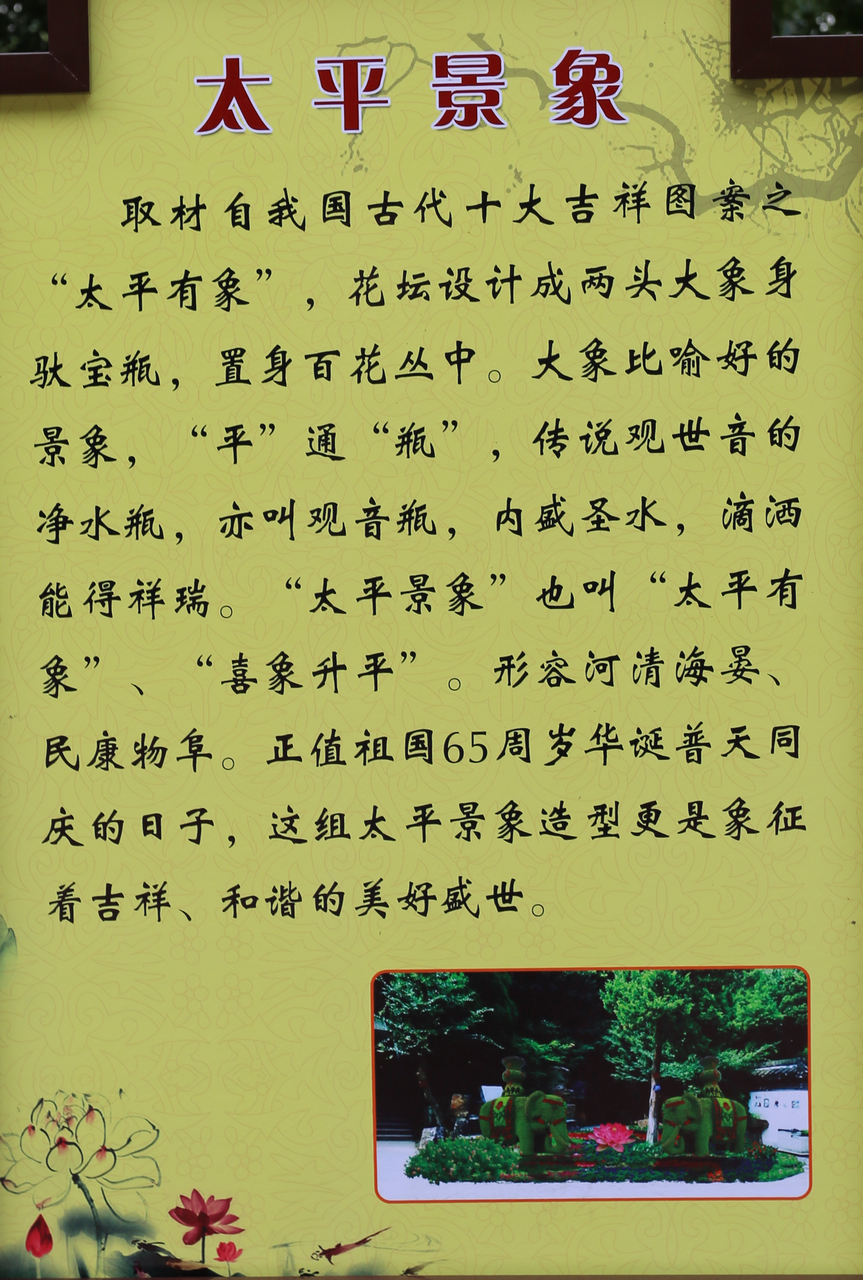 太平景象
取材自我国古代十大吉祥图案之
“太平有象”，花坛设计成两头大象身
驮宝瓶，置身百花丛中。大象比喻好的
景象，“平”通“瓶”，传说观世音的
净水瓶，亦叫观音瓶，内盛圣水，滴洒
能得祥瑞。“太平景象”也叫“太平有
象”、“喜象升平”。形容河清海晏、
民康物阜。正值祖国65周岁华诞普天同
庆的日子，这组太平景象造型更是象征
着吉祥、和谐的美好盛世。